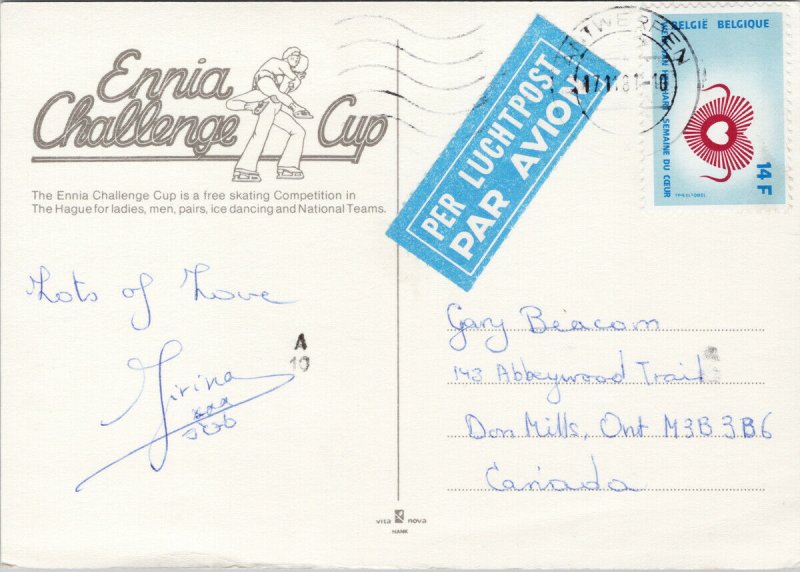 Ennia
Challenge Cup
The Ennia Challenge Cup is a free skating Competition in
The Hague for ladies, men, pairs, ice dancing and National Teams.
Lots of Love
xxx
A
10
PER LUCHTPOST
PAR AVION
ANTWERPEN
BELGIË BELGIQUE
SEMAINE DU CŒUR
14 F
Gary Beacom
143 Abbeywood Trail
Don Mills, Ont M3B 3B6
Canada
vita nova